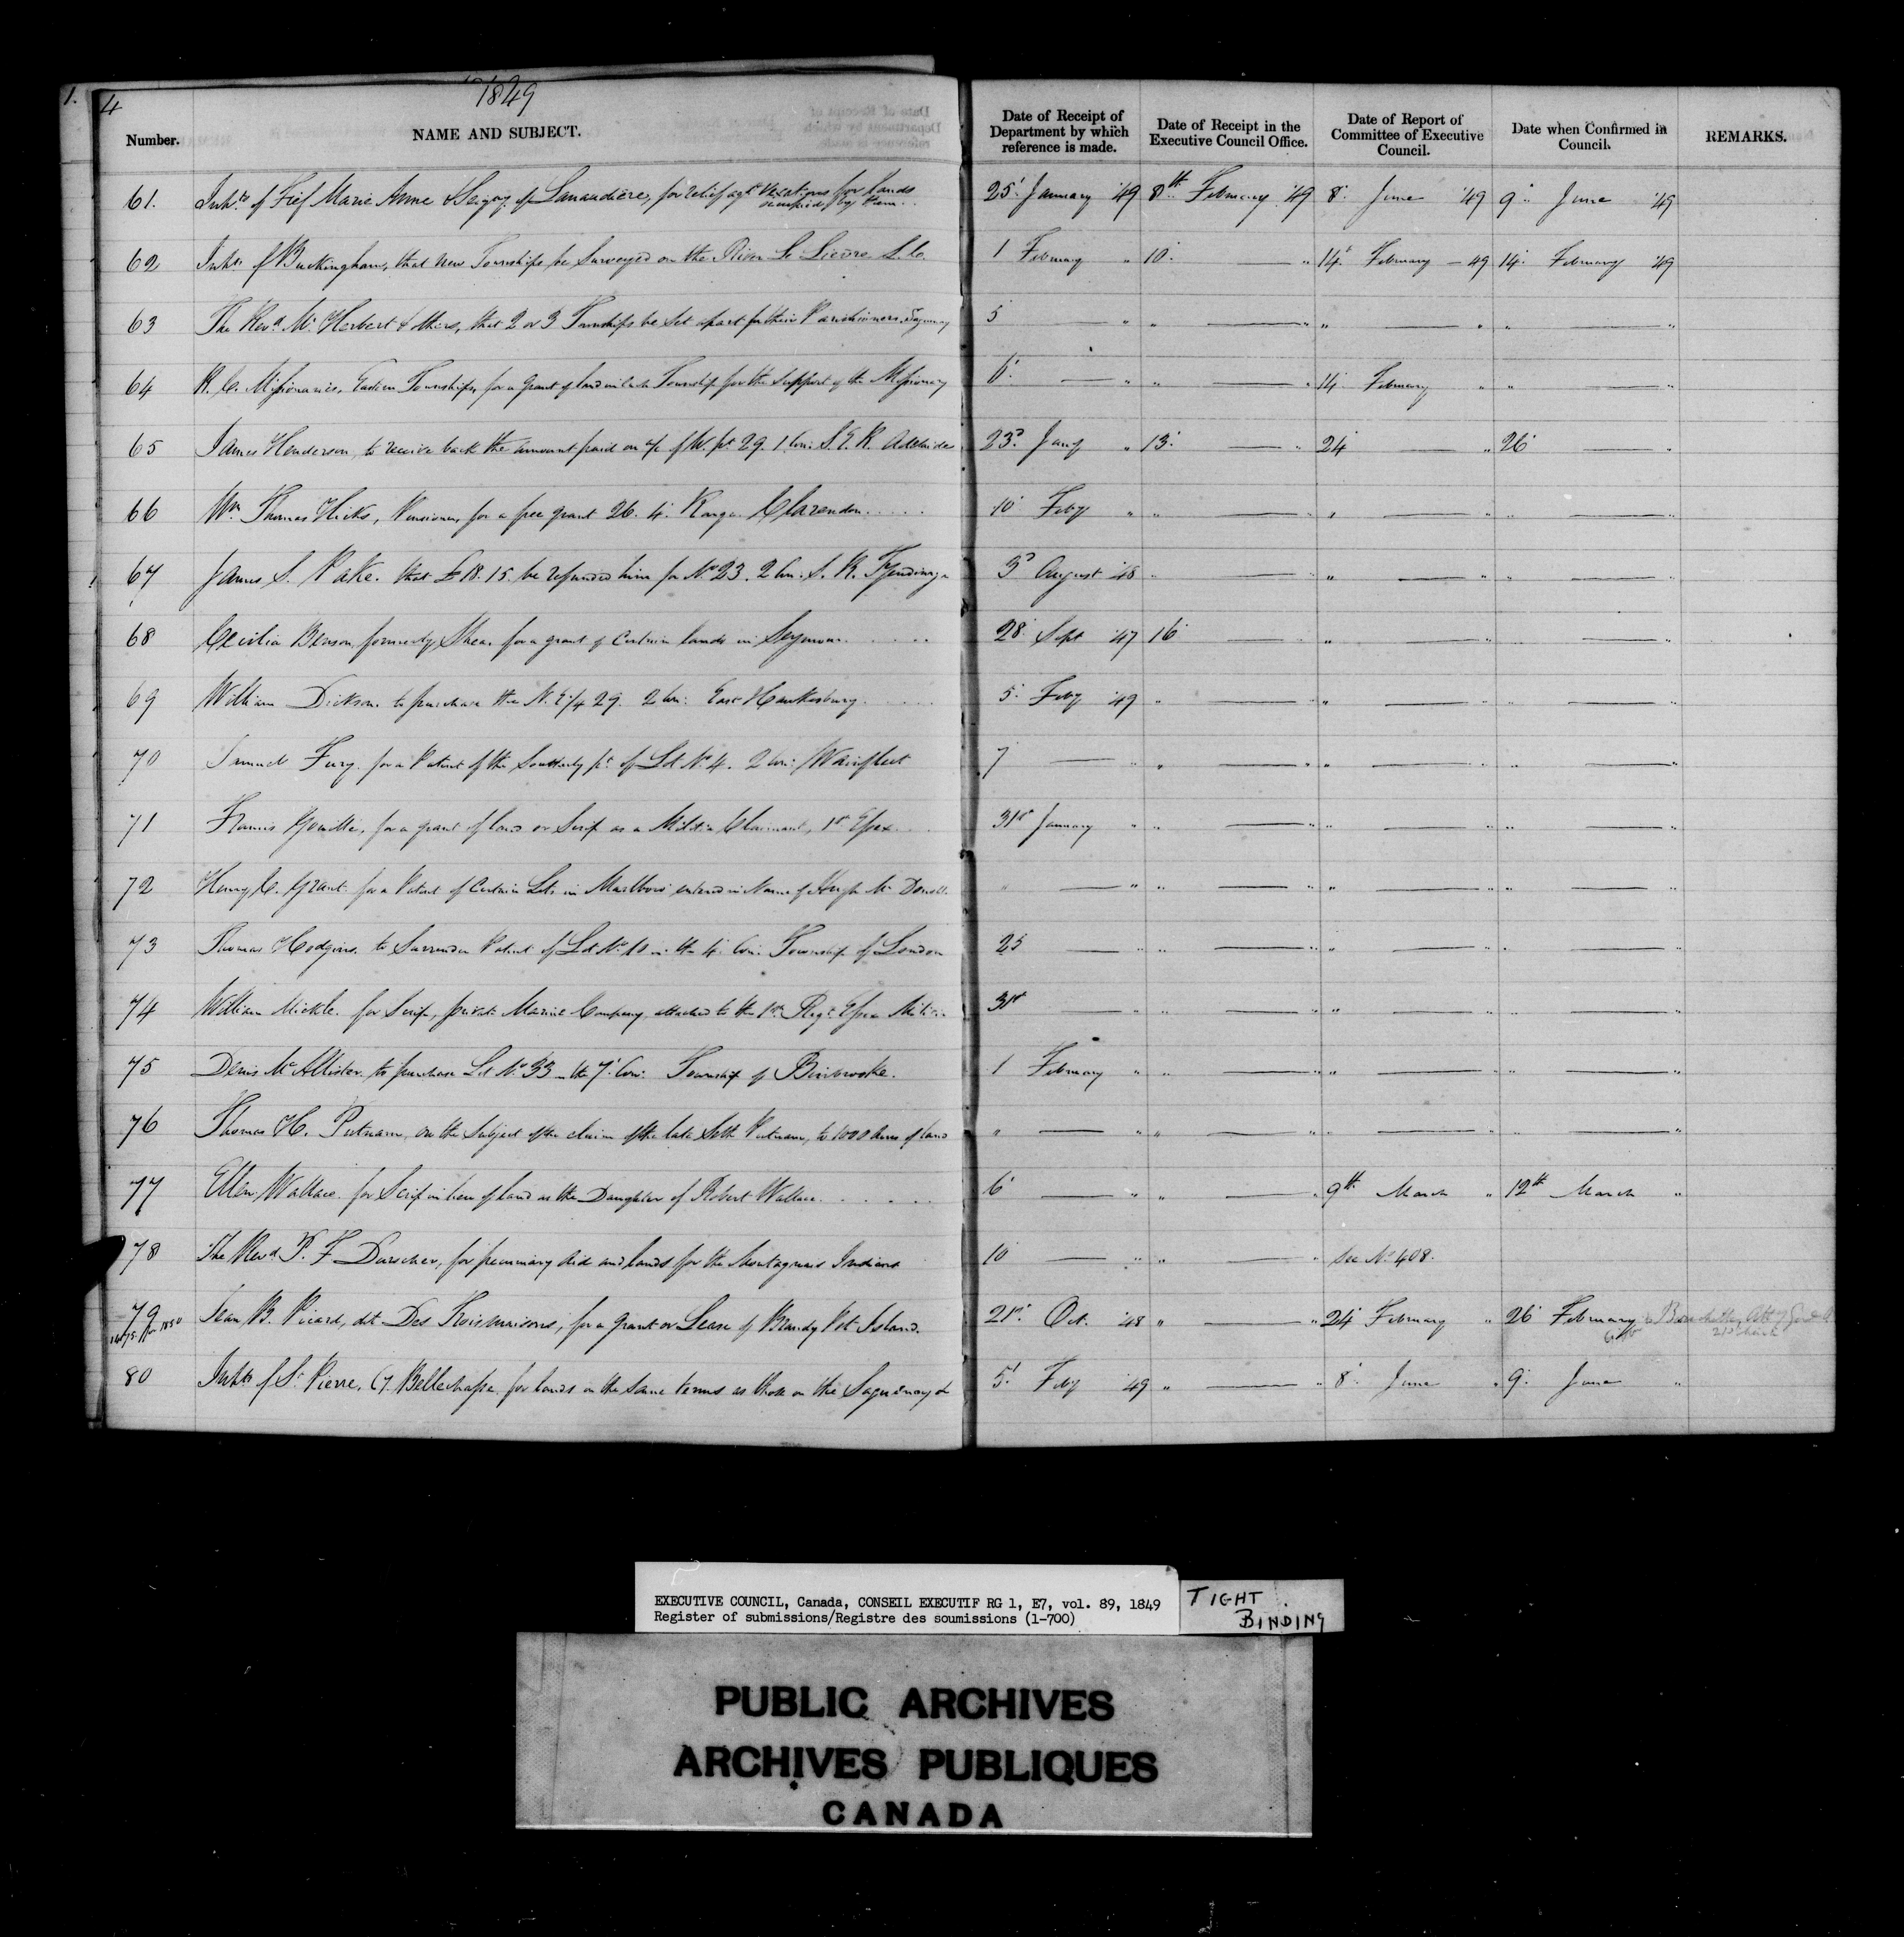 4
1849
Number. NAME AND SUBJECT. Date of Receipt of Department by which reference is made. Date of Receipt in the Executive Council Office. Date of Report of Committee of Executive Council. Date when Confirmed in Council. REMARKS.
61. Inhts of Fief Marie Anne & Seigny of Lanaudière, for relief agt vexations for lands occupied by them. 25. January '49 8th February '49 8. June '49 9. June '49
62 Inhts of Buckingham, that new Townships be Surveyed on the River Le Lièvre L.C. 1 February " 10. — " 14. February — 49 14. February '49
63 The Revd Mr Herbert & others, that 2 or 3 Townships be set apart for their Parishioners, Saguenay 5 — " " — " " — " " — "
64 R. C. Missionaries, Eastern Townships, for a grant of land in each Township for the support of the Missionary 6. — " " — " 14. February " " — "
65 James Henderson, to receive back the amount paid on a/c of W. pt 29. 1 Con: S. E. R. Adelaide 23d Jany " 13. — " 24 — " 26 — "
66 Wm Thomas Hicks, Pensioner, for a free grant 26. 4. Range Clarendon 10 Feby " " — " " — " " — "
67 James S. Pake. that £18. 15. be refunded him for No 23. 2 Con. S. R. Tyendinaga 3d August '48 " — " " — " " — "
68 Cecilia Benson, formerly Shea. for a grant of Certain lands in Seymour 28. Sept '47 16 — " " — " " — "
69 William Dickson. to purchase the N. E 1/4 29. 2 Con: East Hawkesbury 5. Feby '49 " — " " — " " — "
70 Samuel Fury. for a Patent of the Southerly pt of Lot No 4. 2 Con: Wainfleet 7 — " " — " " — " " — "
71 Francis for a grant of land or Scrip as a Militia Claimant, 1st Essex 31st January " " — " " — " " — "
72 Henry C. Grant for a Patent of Certain Lots in Marlboro' entered in Name of Hugh McDonell " — " " — " " — " " — "
73 Thomas Hodgins. to Surrender Patent of Lot No 10 in the 4. Con. Township of London 25 — " " — " " — " " — "
74 William Mickle. for Scrip, private Marine Company, attached to the 1st Regt Essex Militia 31st — " " — " " — " " — "
75 Denis McAllister. to purchase Lot No 33 in the 7. Con: Township of Binbrooke. 1 February " " — " " — " " — "
76 Thomas H. Putnam, on the Subject of the claim of the late Seth Putnam, to 1000 Acres of land " — " " — " " — " " — "
77 Ellen Wallace. for Scrip in lieu of land as the Daughter of Robert Wallace 6 — " " — " 9th March " 12th March "
78 The Revd F. Durocher, for pecuniary Aid and lands for the Montagnais Indians 10 — " " — " See No 408.
79 Jean B. Picard, dit Des Troismaisons, for a grant or Lease of Brandy Pot Island. 21st Oct. '48 " — " 24 February " 26 February
80 Inhts of St Pierre, Cy Bellechasse, for lands on the same terms as those on the Saguenay &c 5. Feby '49 " — " 8. June " 9. June "
EXECUTIVE COUNCIL, Canada, CONSEIL EXECUTIF RG 1, E7, vol. 89, 1849
Register of submissions/Registre des soumissions (1-700)
TIGHT BINDING
PUBLIC ARCHIVES
ARCHIVES PUBLIQUES
CANADA